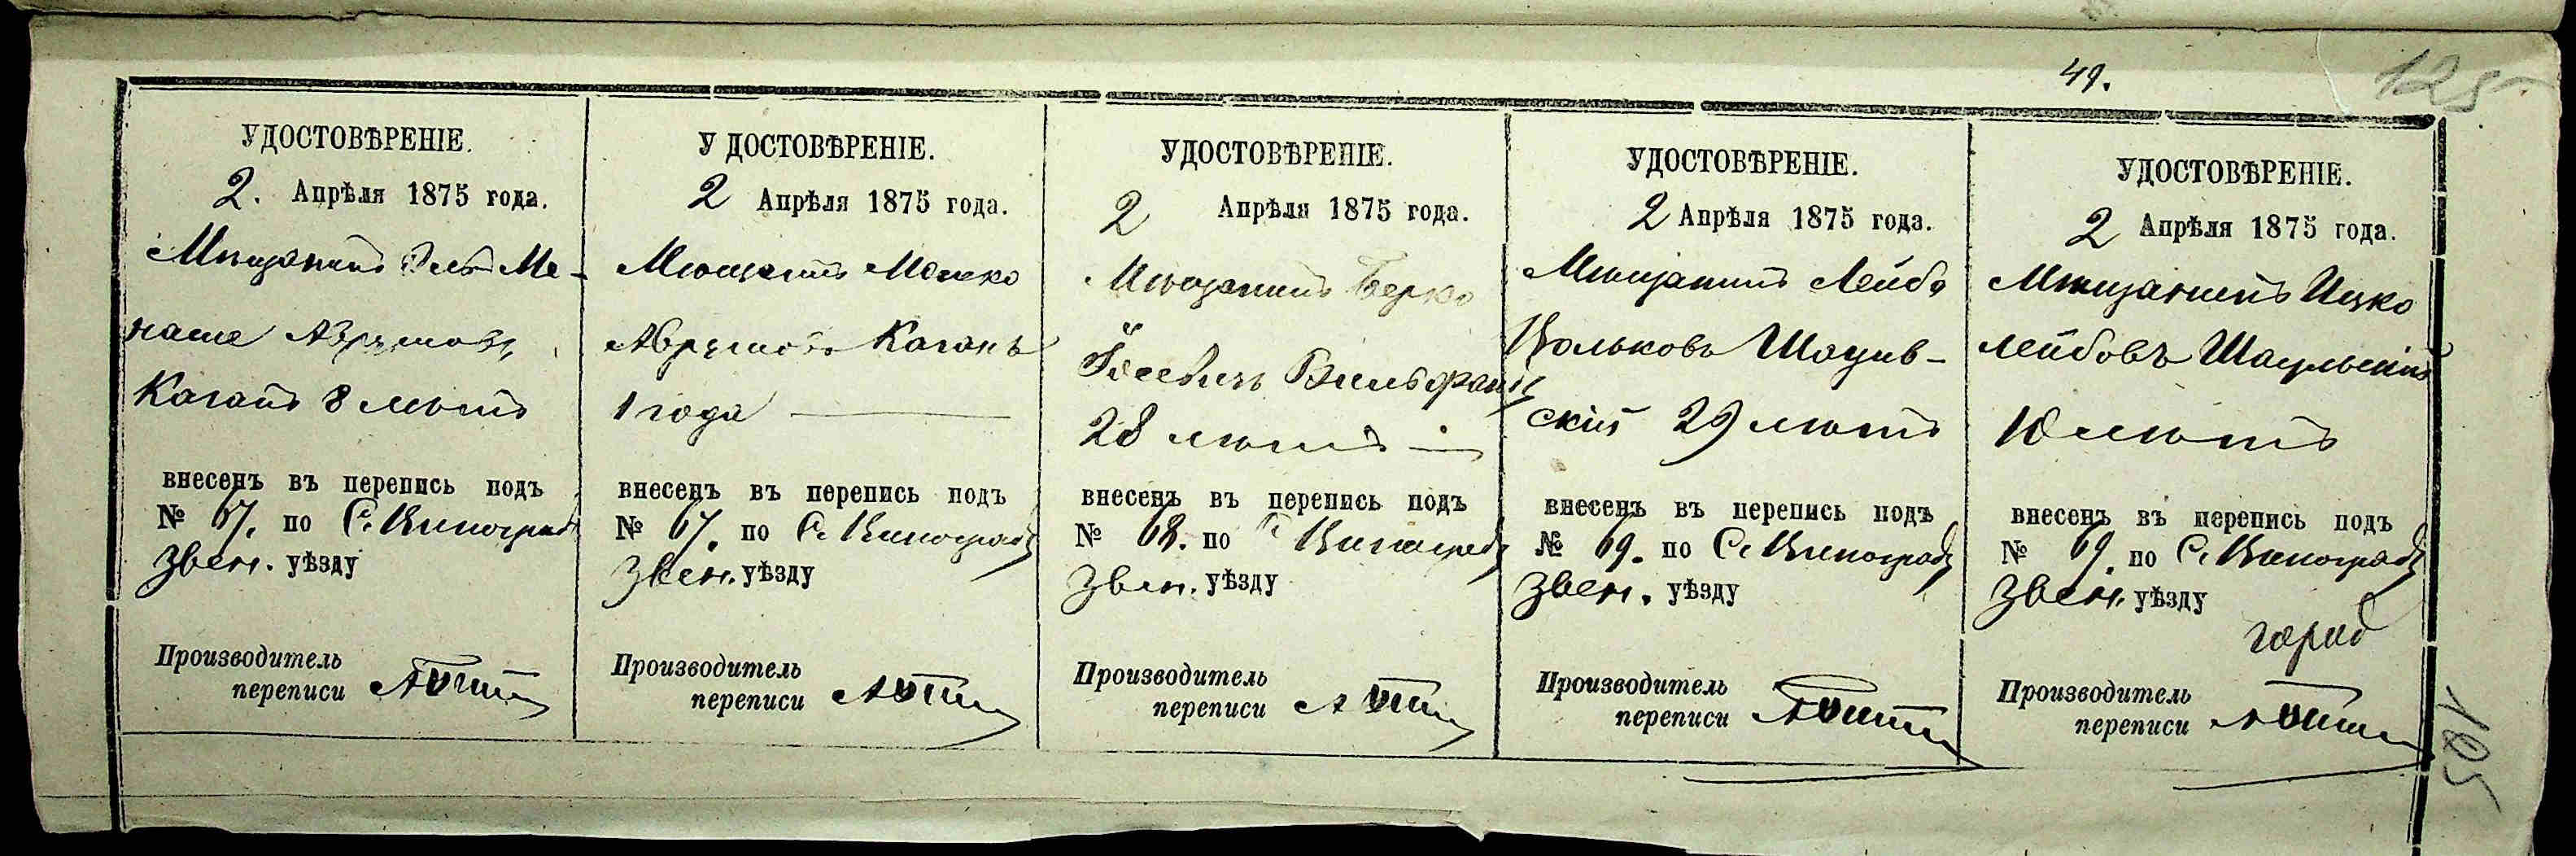 49.
125
УДОСТОВѢРЕНІЕ.
2. Апрѣля 1875 года.
Мѣщанинъ Эль Ме-
наше Аврумовъ
Каганъ 8 лѣтъ
внесенъ въ перепись подъ
№ 67. по С. Виноградъ
Звен. уѣзду
Производитель
переписи
УДОСТОВѢРЕНІЕ.
2 Апрѣля 1875 года.
Мѣщанинъ Мошко
Аврумовъ Каганъ
1 года
внесенъ въ перепись подъ
№ 67. по С. Виноградъ
Звен. уѣзду
Производитель
переписи
УДОСТОВѢРЕНІЕ.
2 Апрѣля 1875 года.
Мѣщанинъ Берко
Іосевичъ Вильфандъ
28 лѣтъ
внесенъ въ перепись подъ
№ 68. по С Виноградъ
Звен. уѣзду
Производитель
переписи
УДОСТОВѢРЕНІЕ.
2 Апрѣля 1875 года.
Мѣщанинъ Лейба
Вольковъ Шаулв-
скій 29 лѣтъ
внесенъ въ перепись подъ
№ 69. по С. Виноградъ
Звен. уѣзду
Производитель
переписи
УДОСТОВѢРЕНІЕ.
2 Апрѣля 1875 года.
Мѣщанинъ Ицко
Лейбовъ Шаульскій
10 лѣтъ
внесенъ въ перепись подъ
№ 69. по С. Виноградъ
Звен. уѣзду
Производитель
переписи
105